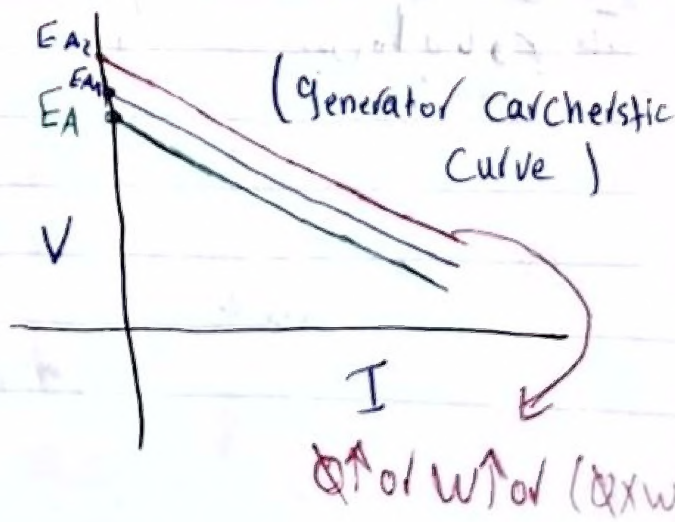 EA2
EA1
EA
(Generator Carcherstic
Curve)
V
I
Φ↑ or W↑ or (ΦxW